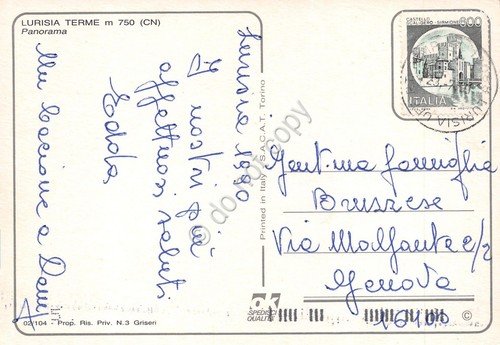 LURISIA TERME m 750 (CN)
Panorama
Lurisia 1990
I nostri più
affettuosi saluti
Edda
Un bacione a
CASTELLO
SCALIGERO - SIRMIONE
600
ITALIA
Gent.ma famiglia
Bruzzese
Via Malfante 2/2
Genova
16100
Printed in Italy S.A.C.A.T. Torino
do not copy
ok
SPEDISCI
QUALITÀ
©
02/104 - Prop. Ris. Priv. N.3 Griseri